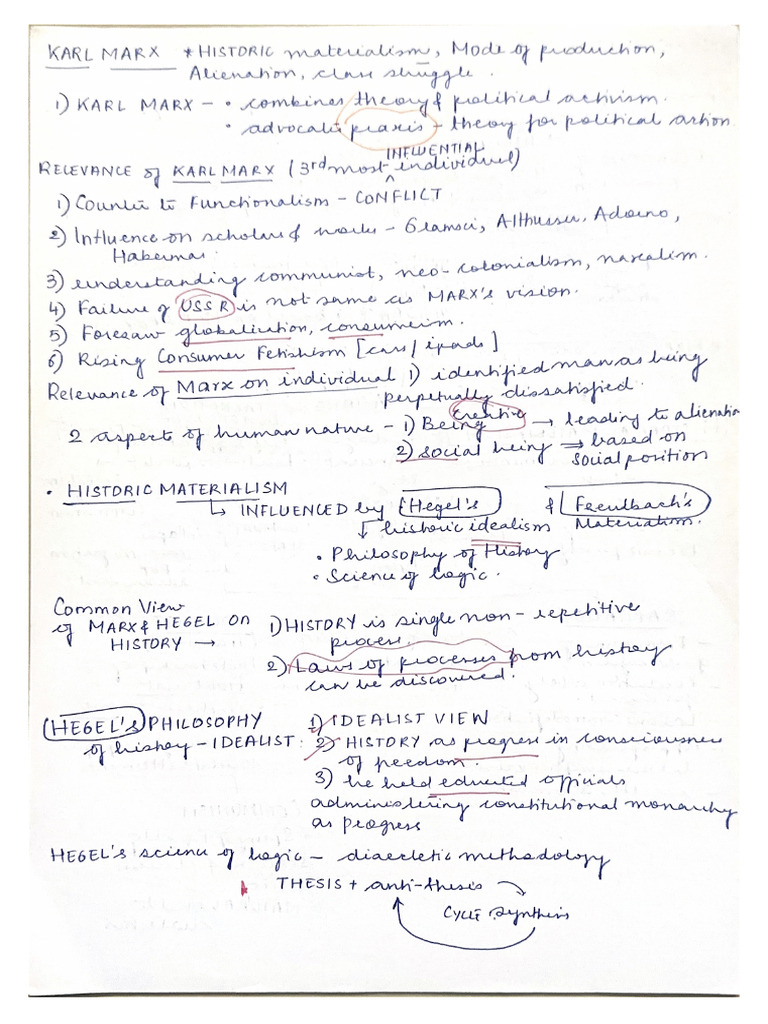 KARL MARX * HISTORIC materialism, Mode of production,
Alienation, class struggle.
1) KARL MARX – • combines theory & political activism.
• advocate praxis – theory for political action
INFLUENTIAL
RELEVANCE of KARL MARX (3rd most ^ individual)
1) Counter to Functionalism – CONFLICT
2) Influence on scholars & works – Gramsci, Althusser, Adorno,
Habermas.
3) understanding communist, neo-colonialism, naxalism.
4) Failure of USSR is not same as MARX's vision.
5) Foresaw globalisation, consumerism.
6) Rising Consumer Fetishism [cars/ipads]
Relevance of Marx on individual 1) identified man as being
perpetually dissatisfied.
2 aspects of human nature – 1) Creative Being → leading to alienation
2) social being → based on
social position
• HISTORIC MATERIALISM
↳ INFLUENCED by Hegel's & Feeulbach's
↓ historic idealism Materialism.
• Philosophy of History
• Science of logic.
Common View
of MARX & HEGEL ON 1) HISTORY is single non-repetitive
HISTORY → process.
2) Laws of processes from history
can be discovered.
HEGEL's PHILOSOPHY 1) IDEALIST VIEW
of history – IDEALIST: 2) HISTORY as progress in consciousness
of freedom.
3) he held educated officials
administering constitutional monarchy
as progress
HEGEL's science of logic – diaelectic methodology
THESIS + anti-thesis
Cycle Synthesis